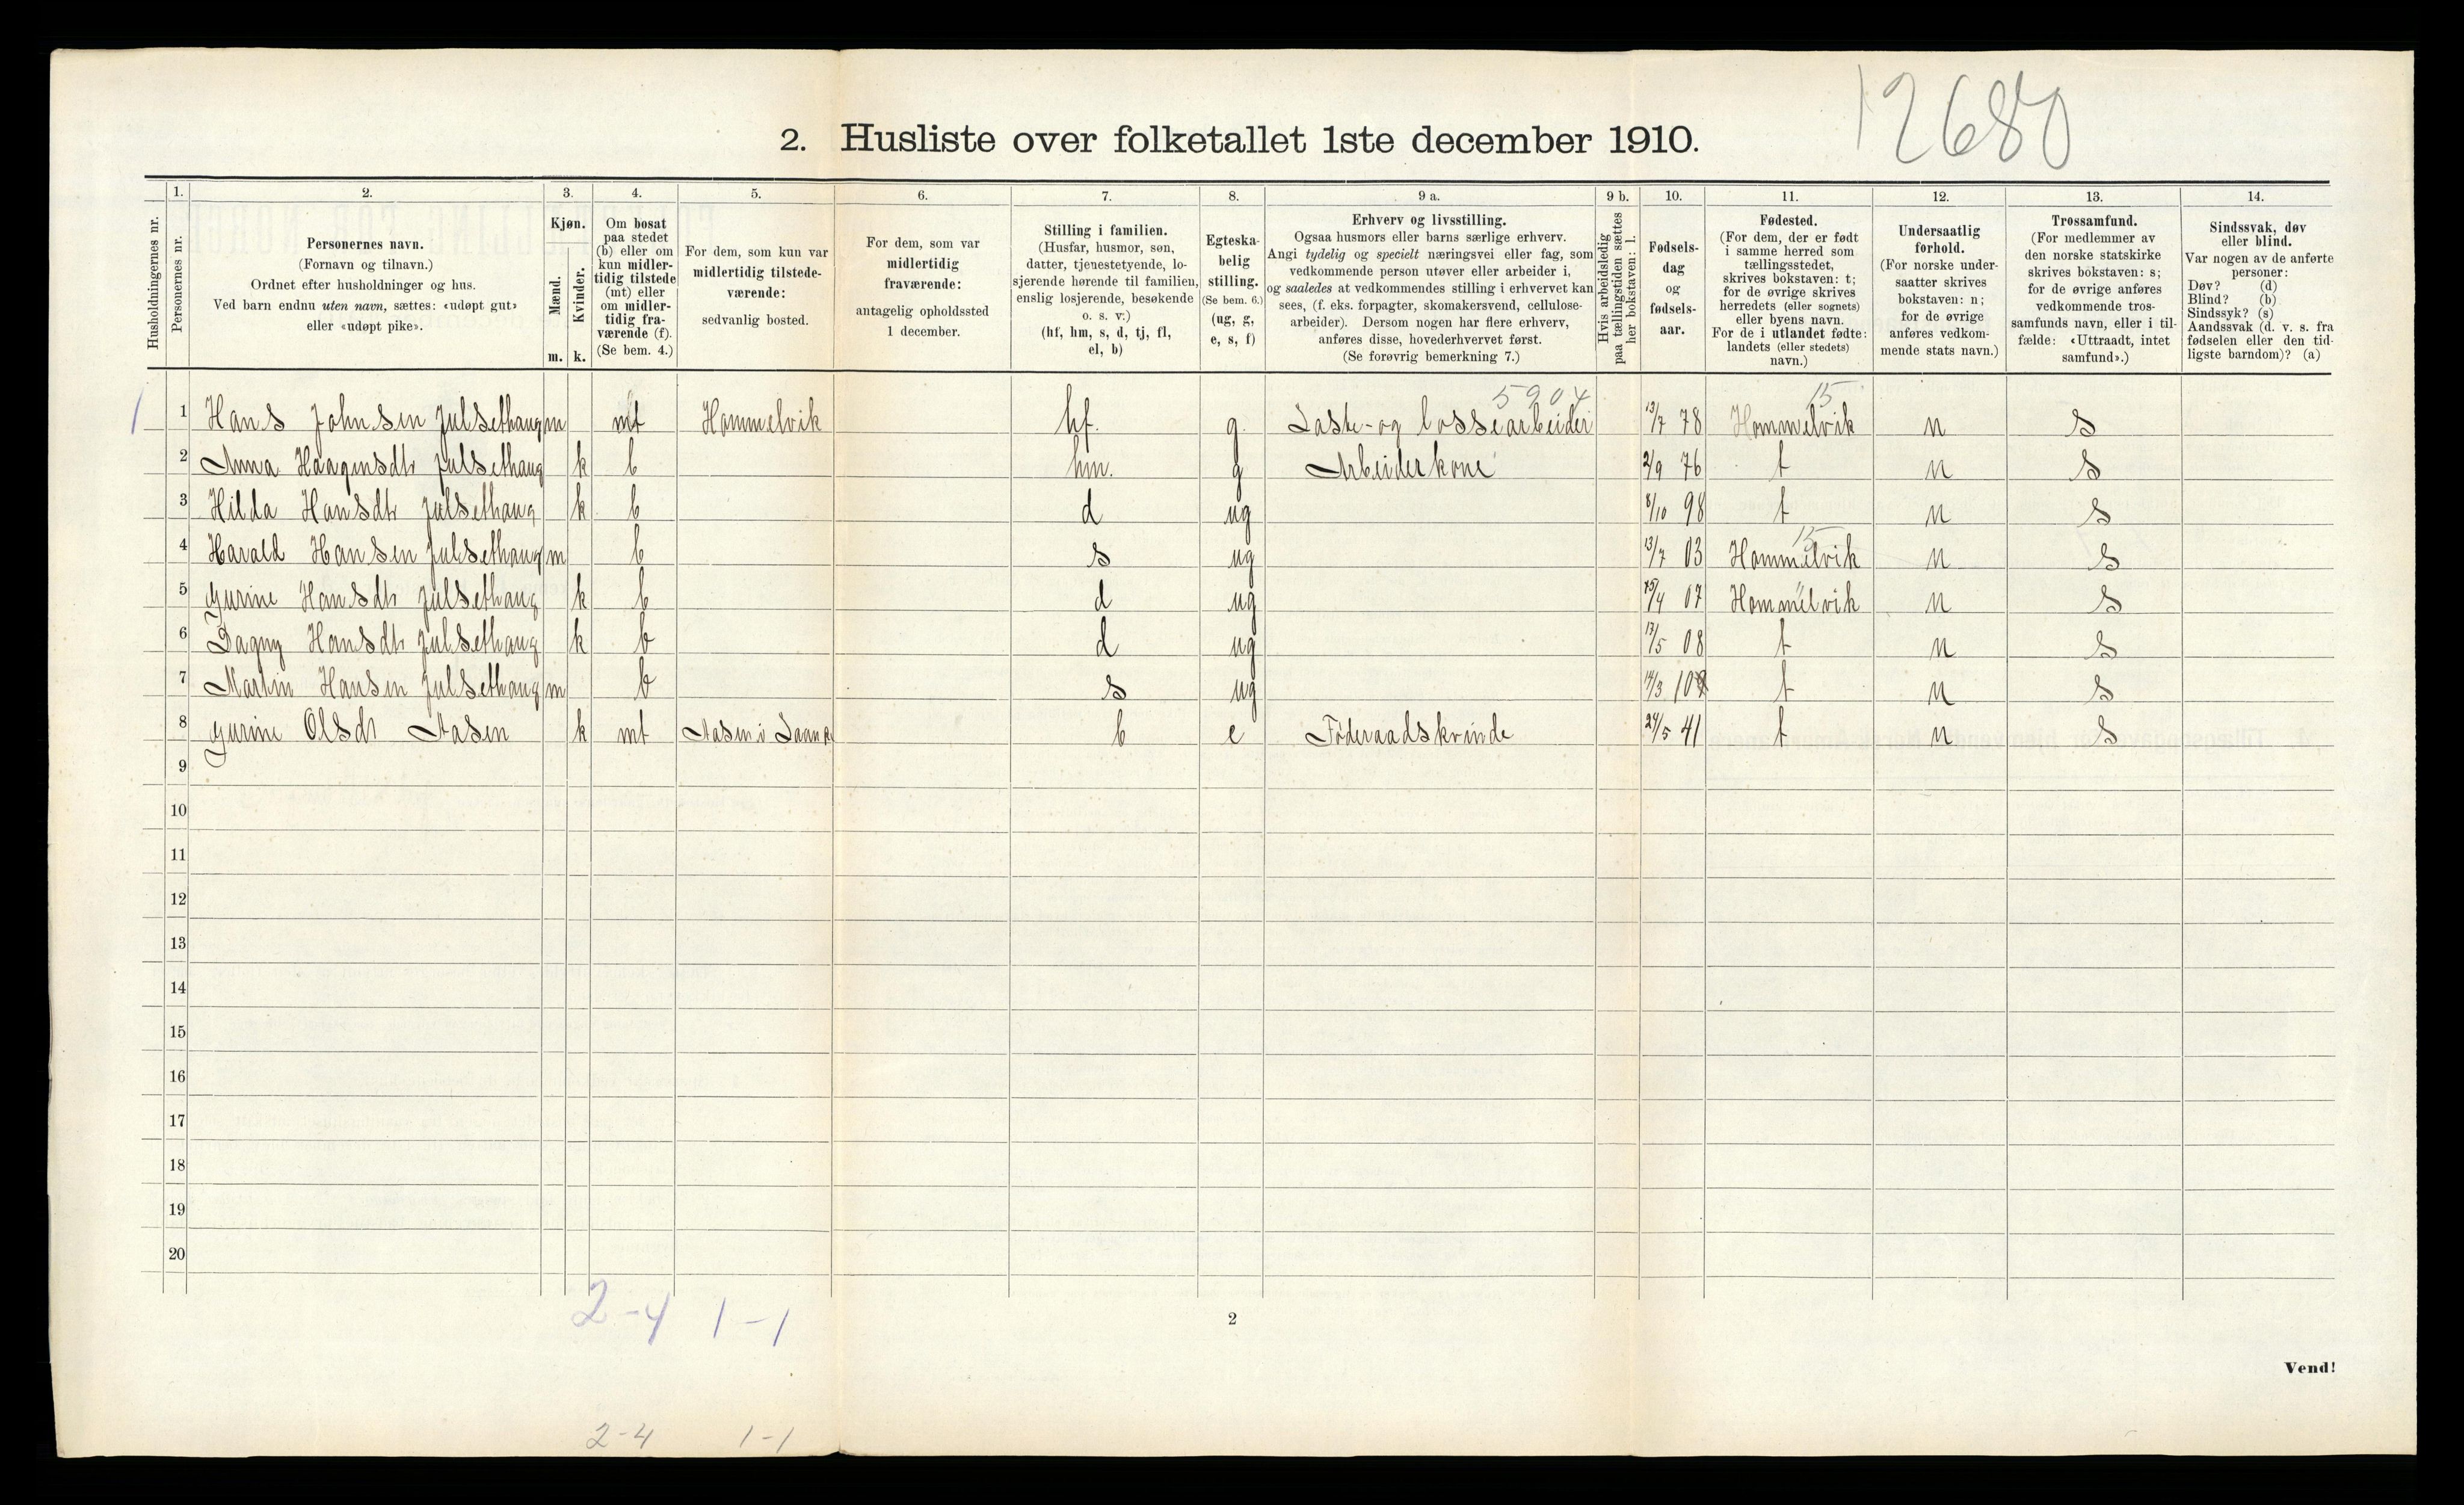 12680
2. Husliste over folketallet 1ste december 1910.
Husholdningernes nr.
1.
Personernes nr.
2.
Personernes navn.
(Fornavn og tilnavn.)
Ordnet efter husholdninger og hus.
Ved barn endnu uten navn, sættes: «udøpt gut»
eller «udøpt pike».
3.
Kjøn.
Mænd.
m.
Kvinder.
k.
4.
Om bosat
paa stedet
(b) eller om
kun midler-
tidig tilstede
(mt) eller
om midler-
tidig fra-
værende (f).
(Se bem. 4.)
5.
For dem, som kun var
midlertidig tilstede-
værende:
sedvanlig bosted.
6.
For dem, som var
midlertidig
fraværende:
antagelig opholdssted
1 december.
7.
Stilling i familien.
(Husfar, husmor, søn,
datter, tjenestetyende, lo-
sjerende hørende til familien,
enslig losjerende, besøkende
o. s. v.)
(hf, hm, s, d, tj, fl,
el, b)
8.
Egteska-
belig
stilling.
(Se bem. 6.)
(ug, g,
e, s, f)
9 a.
Erhverv og livsstilling.
Ogsaa husmors eller barns særlige erhverv.
Angi tydelig og specielt næringsvei eller fag, som
vedkommende person utøver eller arbeider i,
og saaledes at vedkommendes stilling i erhvervet kan
sees, (f. eks. forpagter, skomakersvend, cellulose-
arbeider). Dersom nogen har flere erhverv,
anføres disse, hovederhvervet først.
(Se forøvrig bemerkning 7.)
9 b.
Hvis arbeidsledig
paa tællingstiden sættes
her bokstaven: l.
10.
Fødsels-
dag
og
fødsels-
aar.
11.
Fødested.
(For dem, der er født
i samme herred som
tællingsstedet,
skrives bokstaven: t;
for de øvrige skrives
herredets (eller sognets)
eller byens navn.
For de i utlandet fødte:
landets (eller stedets)
navn.)
12.
Undersaatlig
forhold.
(For norske under-
saatter skrives
bokstaven: n;
for de øvrige
anføres vedkom-
mende stats navn.)
13.
Trossamfund.
(For medlemmer av
den norske statskirke
skrives bokstaven: s;
for de øvrige anføres
vedkommende tros-
samfunds navn, eller i til-
fælde: «Uttraadt, intet
samfund».)
14.
Sindssvak, døv
eller blind.
Var nogen av de anførte
personer:
Døv? (d)
Blind? (b)
Sindssyk? (s)
Aandssvak (d. v. s. fra
fødselen eller den tid-
ligste barndom)? (a)
5904 15
1 1 Hans Johnsen Julsethaug m mt Hommelvik hf. g. Laste- og lossearbeider 13/7 78 Hommelvik n s
2 Anna Haagensdtr Julsethaug k b hm. g Arbeiderkone 2/9 76 t n s
3 Hilda Hansdtr Julsethaug k b d ug 8/10 98 t n s
15
4 Harald Hansen Julsethaug m b s ug 13/7 03 Hommelvik n s
5 Gurine Hansdtr Julsethaug k b d ug /4 07 Hommelvik n s
6 Dagny Hansdtr Julsethaug k b d ug 17/5 08 t n s
7 Martin Hansen Julsethaug m b s ug 14/3 10 t n s
8 Gurine Olsdtr Aasen k mt Aasen i b e Føderaadskvinde 24/5 41 t n s
9
10
11
12
13
14
15
16
17
18
19
20
2-4 1-1
2
Vend!
2-4 1-1